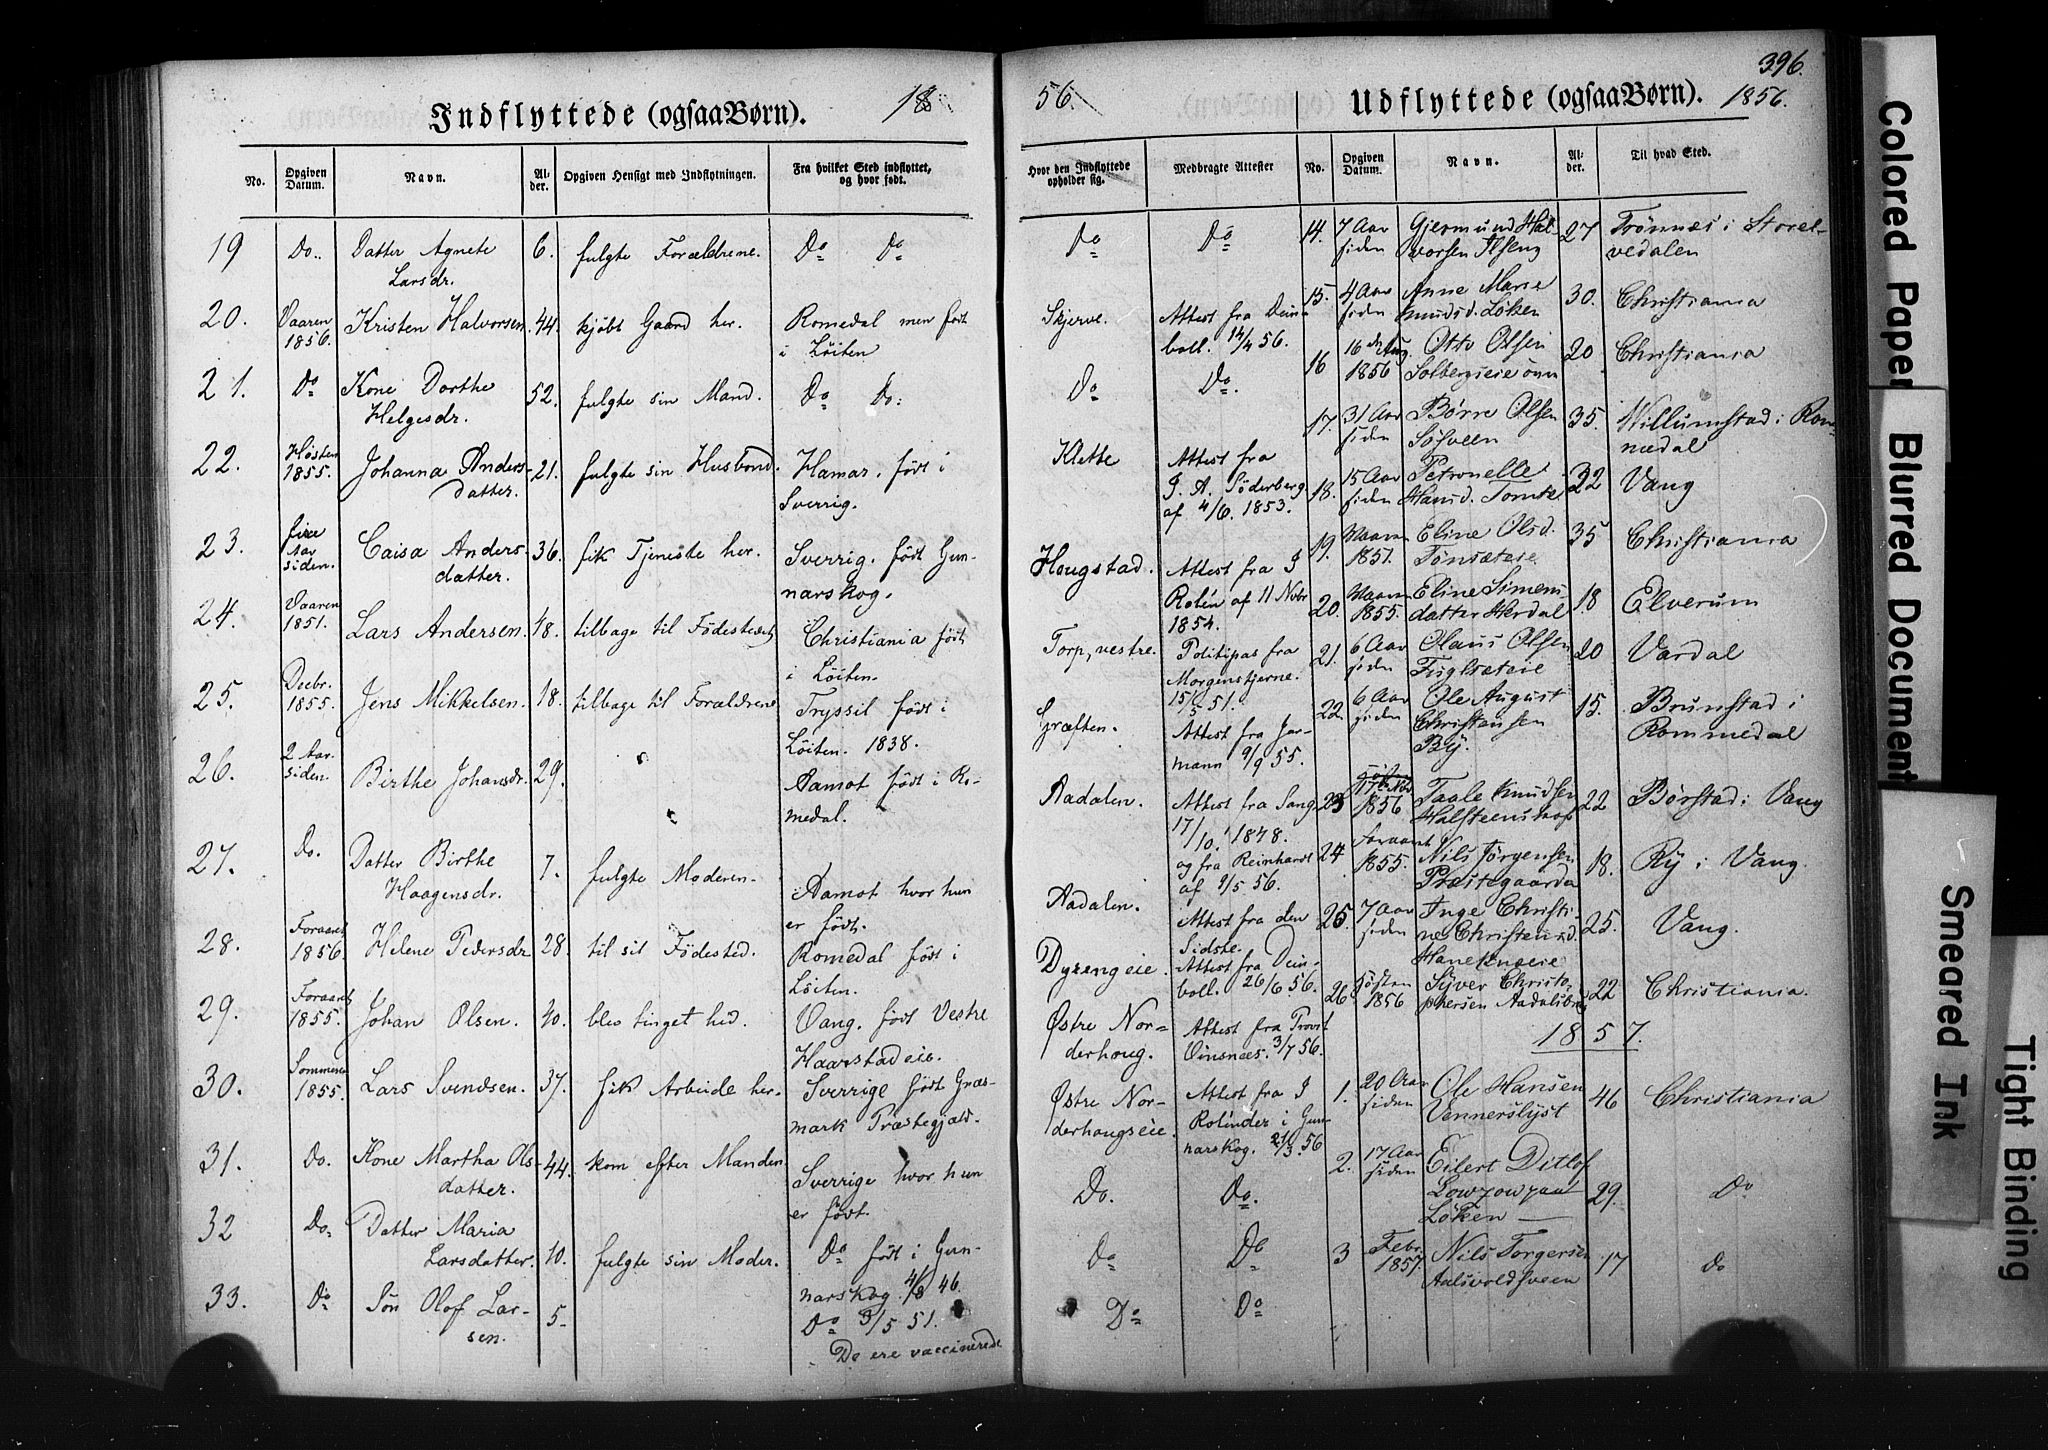 396.
Indflyttede (ogsaa Børn). 18
56. Udflyttede (ogsaa Børn). 1856.
No. Opgiven Datum. Navn. Al-der. Opgiven Hensigt med Indflytningen. Fra hvilket Sted indflyttet, og hvor født. Hvor den Indflyttede opholder sig. Medbragte Attester
19 Do. Datter Agnete 6. fulgte Forældrene. Do Do Do Do
Larsdr.
20. Vaaren Kristen Halvorsen 44. kjøbt Gaard her. Romedal men født Skjerve. Attest fra Dein-
1856. i Löiten boll. 14/4 56.
21. Do Kone Dorthe 52. fulgte sin Mand. Do Do. Do Do.
Helgesdr.
22. Høsten Johanna Anders- 21. fulgte sin Husbond. Hamar, født i Klette Attest fra
1855. datter. Sverrig. J. A. Söderberg
af 4/6. 1853.
23. fire Caisa Anders- 36. fik Tjeneste her. Sverrig. født Gun- Hougstad. Attest fra J
Aar datter. narskog. Rolén af 11 Nobr
siden. 1854.
24. Vaaren Lars Andersen. 48. tilbage til Födestedet Christiania født Torp, vestre. Politipas fra
1851. i Löiten. Morgenstjerne.
15/5 51.
25. Decbr. Jens Mikkelsen. 18. tilbage til Forældrene Tryssil født i Græften. Attest fra Jor-
1855. Löiten. 1838. mann 9/9 55.
26. 2 Aar Birthe Johansdr. 29. Aamot født i Ro- Aadalen. Attest fra Sang
siden. medal. 17/10. 1848.
og fra Reinhardt
af 9/5 56.
27. Do. Datter Birthe 7. fulgte Moderen. Aamot hvor hun Aadalen. Attest fra den
Haagensdr. er født. Sidste.
28. Foraaret Helene Pedersdr 28. til sit Födested. Romedal født i Dyrengeie. Attest fra Dein-
1856 Löiten. boll. 26/6 56.
29. Foraaret Johan Olsen. 40. blev tinget hed. Vang. født Vestre Østre Nor- Attest fra Provst
1855. Haarstadeie. derhoug. Vinsnæs. 3/7 56.
30. Sommeren Lars Svendsen. 37. fik Arbeide her. Sverrige født Græs- Østre Nor- Attest fra J
1855. mark Præstegjæld. derhougseie. Rolinder i Gun-
narskog. 21/3. 56
31. Do. Kone Martha Ols- 44. kom efter Manden Sverrige hvor hun Do. Do.
datter. er født.
32 Do. Datter Maria 10. fulgte sin Moder. Do født i Gun- Do Do
Larsdatter. narskog. 4/8 46.
33. Do Sön Olof Lar- 5- Do 3/5 51. Do Do
sen. De ere vaccinerede
No. Opgiven Datum. Navn. Al-der. Til hvad Sted.
14. 7 Aar Gjermund Hal- 27 Trönnæs i Storel-
siden vorsen Ilseng vedalen
15. 4 Aar Anne Marie 30. Christiania
siden Knudsd. Löken
16 16 de Aug. Otto Olsen 20 Christiania
1856 Solbergseie övre
17. 31 Aar Børre Olsen 35. Willumstad i Rom-
siden Sösveen medal
18. 15 Aar Petronelle 32 Vang
siden Hansd. Tomte
19. Vaaren Eline Olsd. 35 Christiania
1851. Tönsæteie
20. Vaaren Eline Simens 18 Elverum
1855. datter Herdal
21. 6 Aar Olaus Olsen 20 Vardal
siden Fuglsæteie
22. 6 Aar Ole August 15. Brunstad i
siden Christansen Rommedal
By.
23 1856 Taale Knudsen 22 Börstad i Vang
Halsteenshof
24 Foraaret Nils Jörgensen 18. Ry i Vang.
1855. Præstegaarden
25. 7 Aar Inge Christi- 25. Vang.
siden ne Christensd.
Hanekneeie
26 Høsten Syver Christo- 22 Christiania.
1856 phersen Aadalsbrug
1857.
1. 20 Aar Ole Hansen 46 Christiania
siden Vennerslyst
2. 17 Aar Eilert Ditlof 29. Do
siden Lowzow paa
Löken
3 Febr. Nils Torgersen 17 Do
1857 Aalsvoldsveen
Colored Paper
Blurred Document
Smeared Ink
Tight Binding